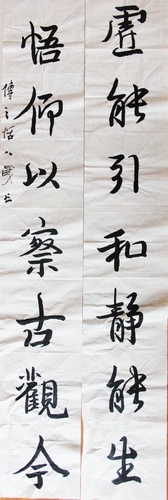 虚能引和静能生
悟仰以察古觀今